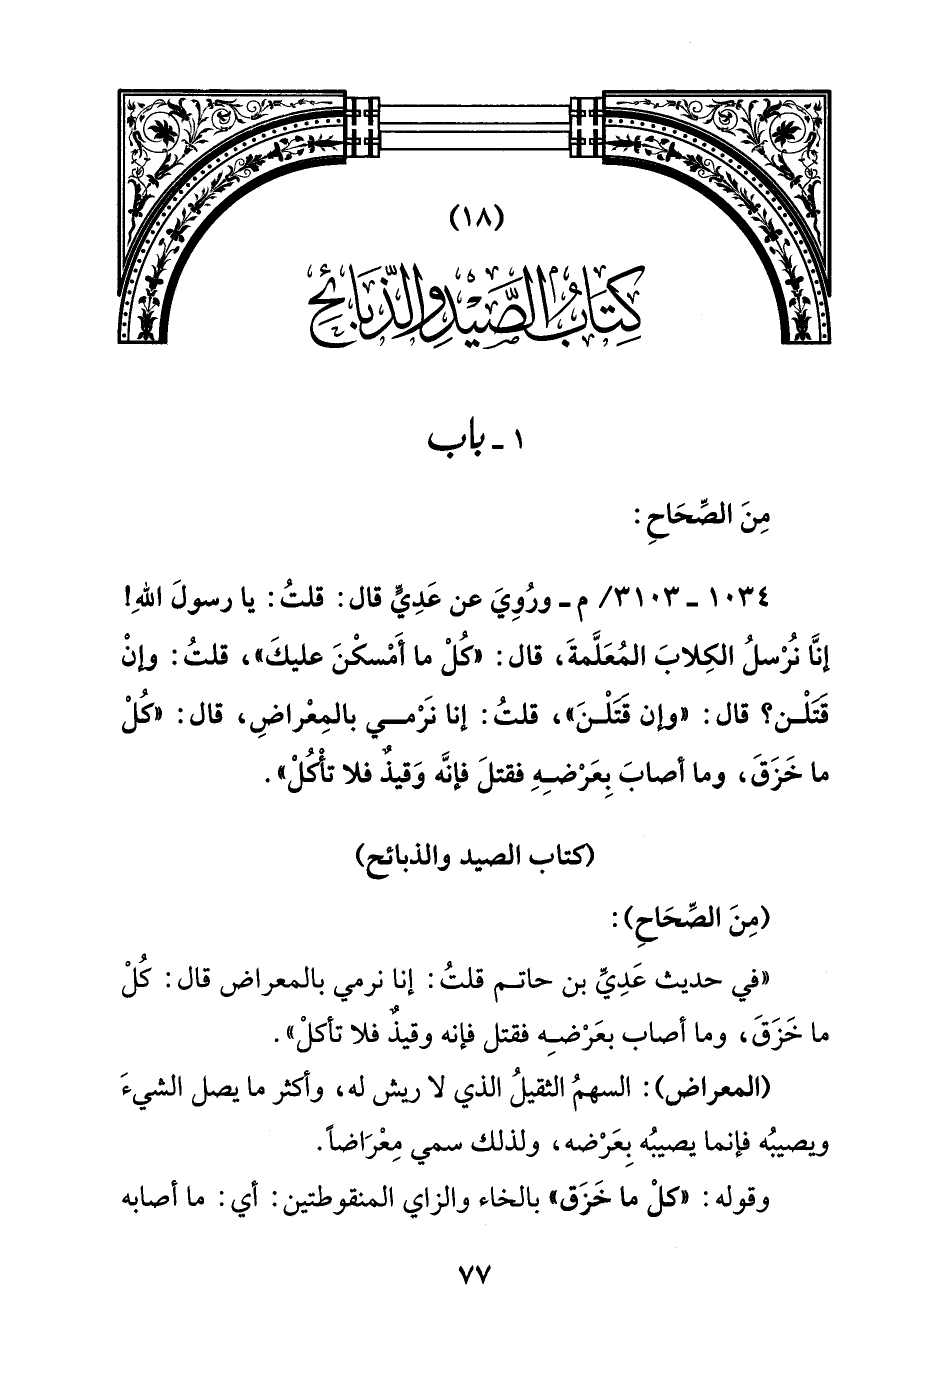 (١٨)
كِتَابُ الصَّيْدِ وَالذَّبَائِحِ
١ ـ باب
مِنَ الصِّحَاحِ:
١٠٣٤ ـ ٣١٠٣/ م ـ ورُوِيَ عن عَدِيٍّ قال: قلتُ: يا رسولَ اللهِ!
إنَّا نُرْسلُ الكِلابَ المُعَلَّمةَ، قال: «كُلْ ما أَمْسكْنَ عليكَ»، قلتُ: وإنْ
قَتَلْـن؟ قال: «وإن قَتَلْـنَ»، قلتُ: إنا نَرْمـــي بالمِعْراضِ، قال: «كُلْ
ما خَزَقَ، وما أصابَ بِعَرْضـِهِ فقتلَ فإنَّه وَقيذٌ فلا تأْكُلْ».
(كتاب الصيد والذبائح)
(مِنَ الصِّحَاحِ):
«في حديث عَدِيِّ بن حاتـم قلتُ: إنا نرمي بالمعراض قال: كُلْ
ما خَزَقَ، وما أصاب بعَرْضـِه فقتل فإنه وقيذٌ فلا تأكلْ».
(المعراض): السهمُ الثقيلُ الذي لا ريش له، وأكثر ما يصل الشيءَ
ويصيبُه فإنما يصيبُه بِعَرْضه، ولذلك سمي مِعْرَاضاً.
وقوله: «كلْ ما خَزَق» بالخاء والزاي المنقوطتين: أي: ما أصابه
٧٧